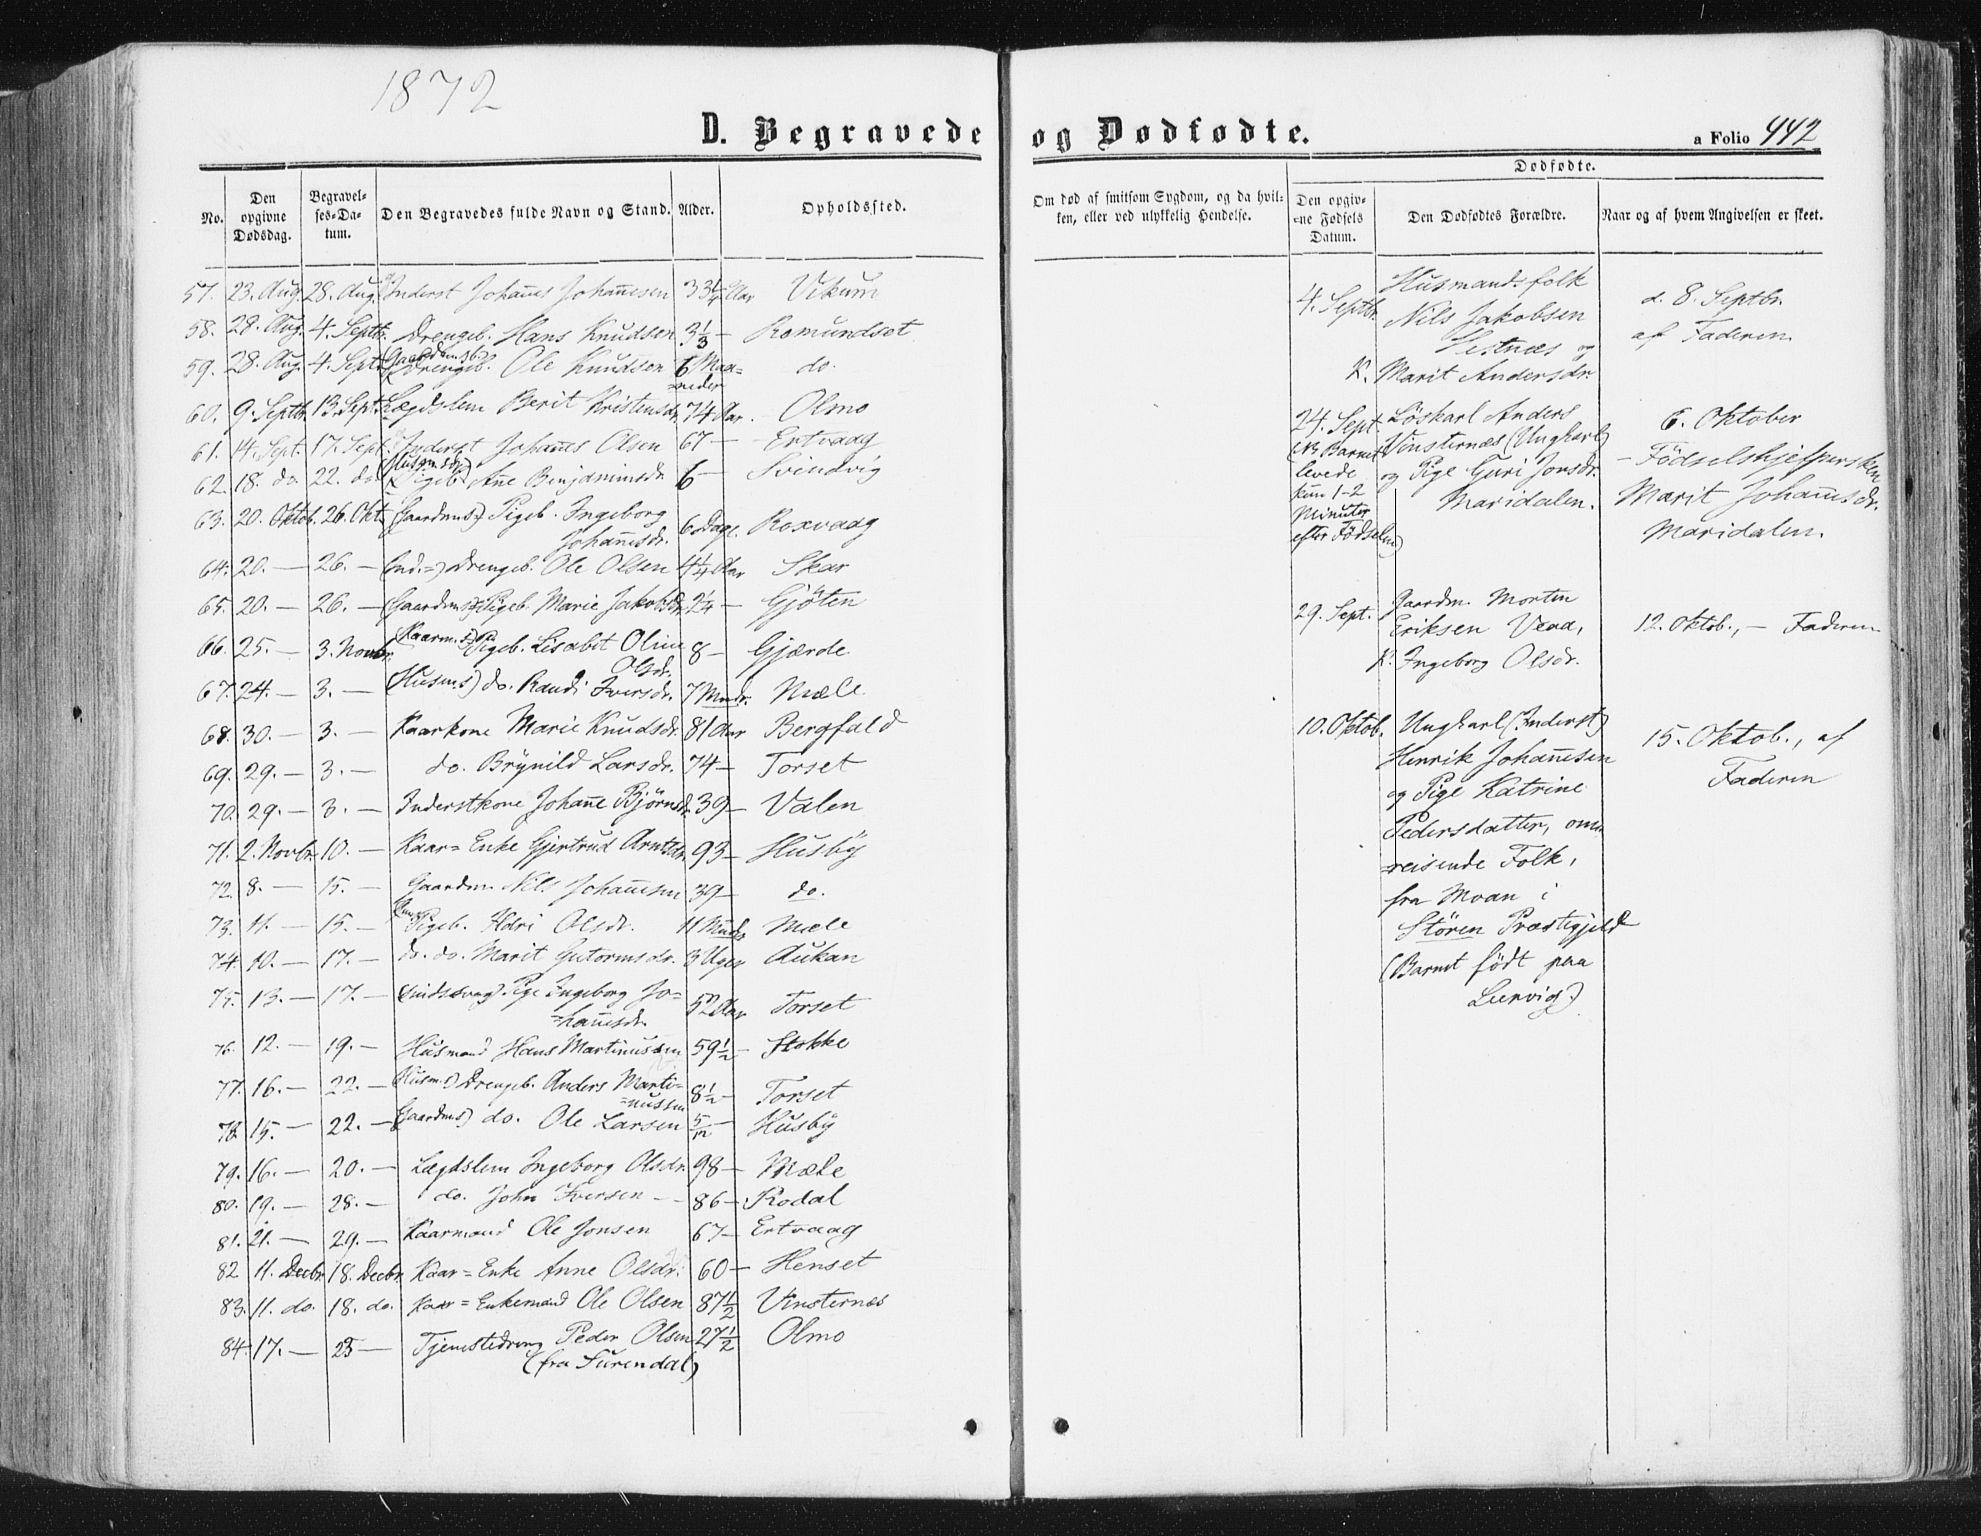 1872
D. Begravede og Dødfødte.
a Folio 442
No.
Den opgivne Dødsdag.
Begravelses-Datum.
Den Begravedes fulde Navn og Stand.
Alder.
Opholdssted.
Om død af smitsom Sygdom, og da hvilken, eller ved ulykkelig Hendelse.
Dødfødte.
Den opgivne Fødsels Datum.
Den Dødfødtes Forældre.
Naar og af hvem Angivelsen er skeet.
57. 23. Aug. 28. Aug. Inderst Johañes Johañesen 33 1/4 Aar Vikum
58. 28. Aug. 4. Septb. Drengeb. Hans Knudsen 3 1/3 — Romundset
59. 28. Aug. 4. Sept. (Gaardms b.) Drengeb. Ole Knudsen 6 Maaneder do.
60. 9. Septbr. 13. Sept. Lægdslem Berit Kristensdr. 74 Aar. Olmo
61. 14. Sept. 17. Sept. Inderst Johañes Olsen 67 — Ertvaag
62. 18. do. 22. do. (Husms) Pigeb. Añe Benjaminsdr. 6 — Svindvig
63. 20. Oktob. 26. Okt. (Gaardms) Pigeb. Ingeborg Johañesdr. 6 Dage. Roxvaag
64. 20. — 26. — (Ind.=) Drengeb. Ole Olsen 4 1/4 Aar Skar
65. 20. — 26. — (Gaardms) Pigeb. Marie Jakobsdr. 2 1/4 — Gjöten
66. 25. — 3. Novbr. (Kaarm.s) Pigeb. Lisabet Oline Olsdr. 8 — Gjærde
67. 24. — 3. — (Husms) do. Randi Iversdr. 7 Mndr. Mæle
68. 30. — 3. — Kaarkone Marie Knudsdr. 81 Aar Bergfald
69. 29. — 3. — do. Brynild Larsdr. 74 — Torset
70. 29. — 3. — Inderstkone Johañe Björnsdr. 39 — Valen
71. 2. Novbr. 10. — Kaar= Enke Gjertrud Arntsdr. 93 — Husby
72. 8. — 15. — Gaardm. Nils Johañesen 39 — do.
73. 11. — 15. — Pigeb. Adri Olsdr. 11 Mndr Mæle
74. 10. — 17. — do. do. Marit Gutormsdr. 3 Uger Aukan
75. 13. — 17. — (sindssvag) Pige Ingeborg Jo=hañesdr. 52 Aar Torset
76. 12. — 19. — Husmand Hans Martinussen 59 1/2 — Stokke
77. 16. — 22. — (Husm.s) Drengeb. Anders Marti=nussen 8 1/2 — Torset
78. 15. — 22. — (Gaardms) do. Ole Larsen 5/12 — Husby
79. 16. — 20. — Lægdslem Ingeborg Olsdr. 98 — Mæle
80. 19. — 28. — do. John Iversen — 86 — Rodal
81. 21. — 29. — Kaarmand Ole Jonsen 67 — Ertvaag
82 11. Decbr. 18. Decbr. Kaar= Enke Anne Olsdr. 60 — Henset
83. 11. do. 18. do. Kaar= Enkemand Ole Olsen 87 1/2 Vinsternæs
84. 17. — 23 — Tjenestedreng Peder Olsen (fra Surendal) 27 1/2 Olmo
4. Septbr.
Husmandsfolk
Nils Jakobsen
Vestnæs og
K. Marit Andersdr.
d. 8. Septbr.
af Faderen.
24. Sept.
(NB Barnet
levede
kun 1-2
Minuter
efter Fødselen)
Löskarl Anders
Vinsternæs (Ungkarl)
og Pige Guri Jonsdr.
Maridalen.
6. Oktober
— Födselshjelpersken
Marit Johañesdr.
Maridalen.
29. Sept.
Gaardm. Morten
Eriksen Vead,
K. Ingeborg Olsdr.
12. Oktob., — Faderen
10. Oktob.
Ungkarl (Inderst)
Henrik Johañesen
og Pige Katrine
Pedersdatter, om=
=reisende Folk,
fra Moan i
Stören Præstegjeld
(Barnet födt paa
Lervig.)
15. Oktob., af
Faderen